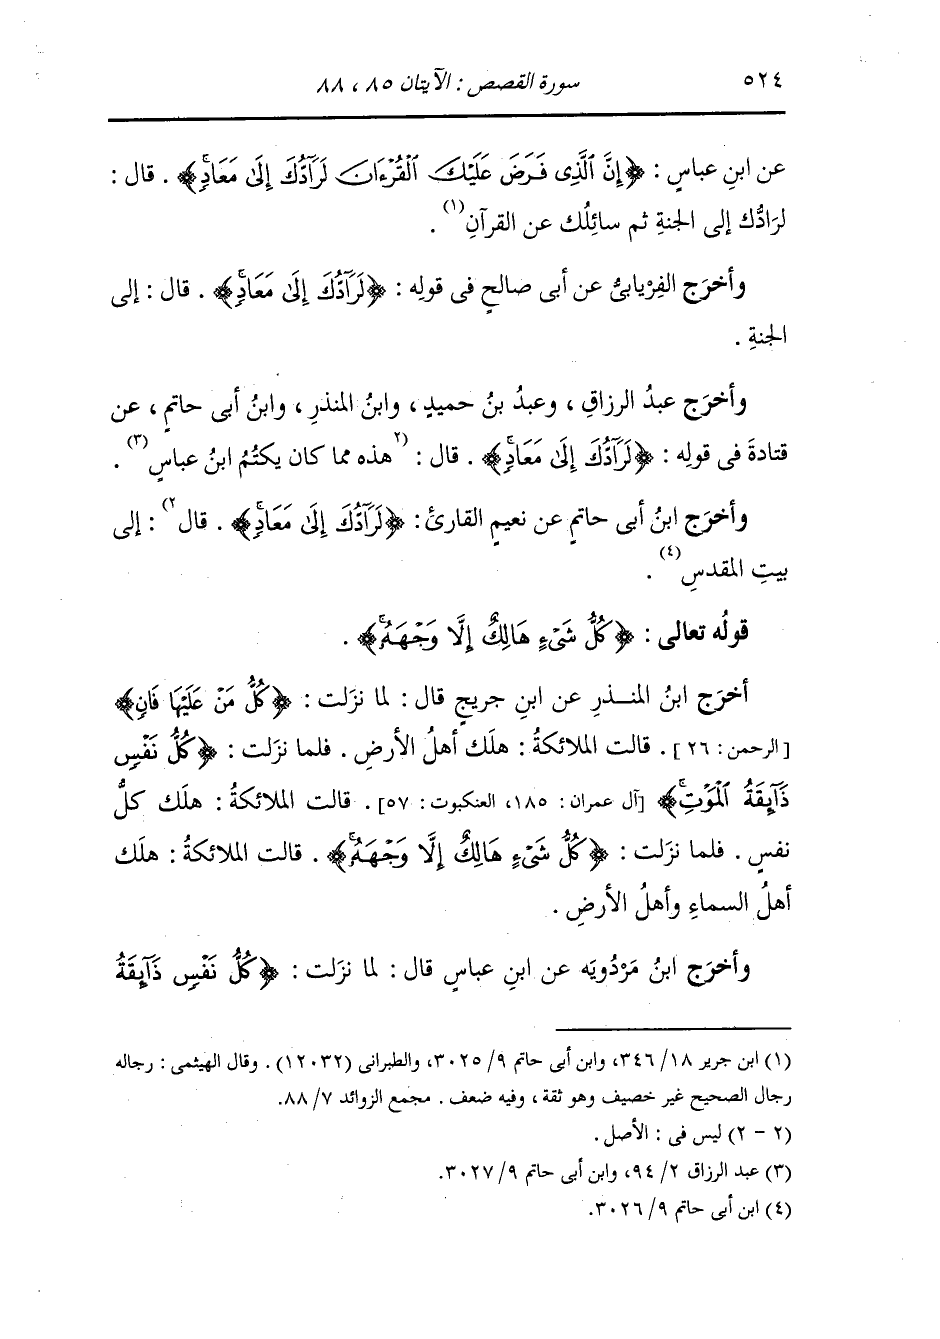 ٥٢٤
سورة القصص : الآيتان ٨٥ ، ٨٨
عن ابنِ عباسٍ : ﴿إِنَّ ٱلَّذِى فَرَضَ عَلَيْكَ ٱلْقُرْءَانَ لَرَآدُّكَ إِلَىٰ مَعَادٍۚ﴾ . قال :
لرَادُّك إلى الجنةِ ثم سائِلُك عن القرآنِ(١) .
وأخرَج الفِرْيابىُّ عن أبى صالحٍ فى قولِه : ﴿لَرَآدُّكَ إِلَىٰ مَعَادٍۚ﴾ . قال : إلى
الجنةِ .
وأخرَج عبدُ الرزاقِ ، وعبدُ بنُ حميدٍ ، وابنُ المنذرِ ، وابنُ أبى حاتمٍ ، عن
قتادةَ فى قولِه : ﴿لَرَآدُّكَ إِلَىٰ مَعَادٍۚ﴾ . قال : (٢هذه مما كان يكتُمُ ابنُ عباسٍ(٣) .
وأخرَج ابنُ أبى حاتمٍ عن نعيمٍ القارئَ : ﴿لَرَآدُّكَ إِلَىٰ مَعَادٍۚ﴾ . قال٢) : إلى
بيتِ المقدسِ(٤) .
قولُه تعالى : ﴿كُلُّ شَىْءٍ هَالِكٌ إِلَّا وَجْهَهُۥۚ﴾ .
أخرَج ابنُ المنـذرِ عن ابنِ جريجٍ قال : لما نزَلت : ﴿كُلُّ مَنْ عَلَيْهَا فَانٍ﴾
[الرحمن : ٢٦] . قالت الملائكةُ : هلَك أهلُ الأرضِ . فلما نزَلت : ﴿كُلُّ نَفْسٍ
ذَآئِقَةُ ٱلْمَوْتِۚ﴾ [آل عمران : ١٨٥، العنكبوت : ٥٧] . قالت الملائكةُ : هلَك كلُّ
نفسٍ . فلما نزَلت : ﴿كُلُّ شَىْءٍ هَالِكٌ إِلَّا وَجْهَهُۥۚ﴾ . قالت الملائكةُ : هلَك
أهلُ السماءِ وأهلُ الأرضِ .
وأخرَج ابنُ مَرْدُويَه عن ابنِ عباسٍ قال : لما نزَلت : ﴿كُلُّ نَفْسٍ ذَآئِقَةُ
(١) ابن جرير ١٨/ ٣٤٦، وابن أبى حاتم ٩/ ٣٠٢٥، والطبرانى (١٢٠٣٢) . وقال الهيثمى : رجاله
رجال الصحيح غير خصيف وهو ثقة ، وفيه ضعف . مجمع الزوائد ٧/ ٨٨.
(٢ - ٢) ليس فى : الأصل .
(٣) عبد الرزاق ٢/ ٩٤، وابن أبى حاتم ٩/ ٣٠٢٧.
(٤) ابن أبى حاتم ٩/ ٣٠٢٦.